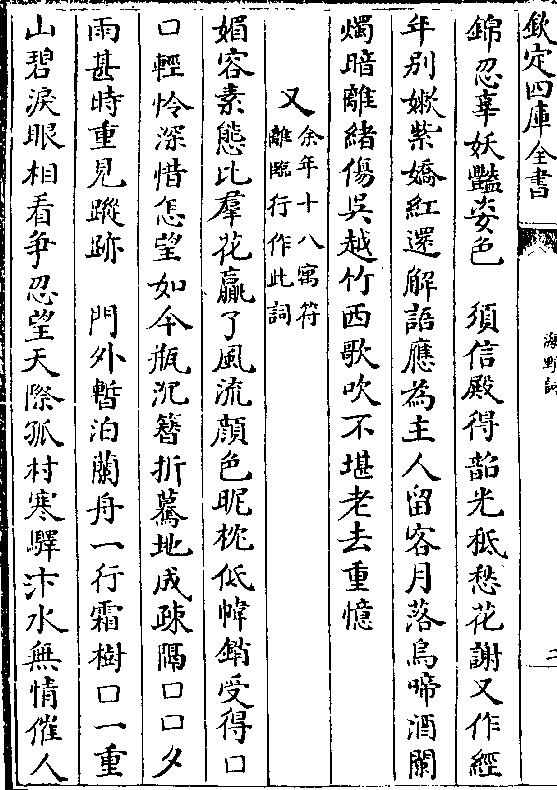 欽定四庫全書
海野詞
二
錦忍辜妖豔姿色　須信殿得韶光秪愁花謝又作經
年别嫰紫嬌紅還解語應為主人留客月落烏啼酒闌
燭暗離緒傷吳越竹西歌吹不堪老去重憶
又余年十八寓符
離臨行作此詞
媚容素態比羣花贏了風流顔色昵枕低幃銷受得口
口輕怜深惜怎望如今瓶沉簪折驀地成疎隔口口夕
雨甚時重見蹤跡　門外暫泊蘭舟一行霜樹口一重
山碧淚眼相看争忍望天際孤村寒驛汴水無情催人